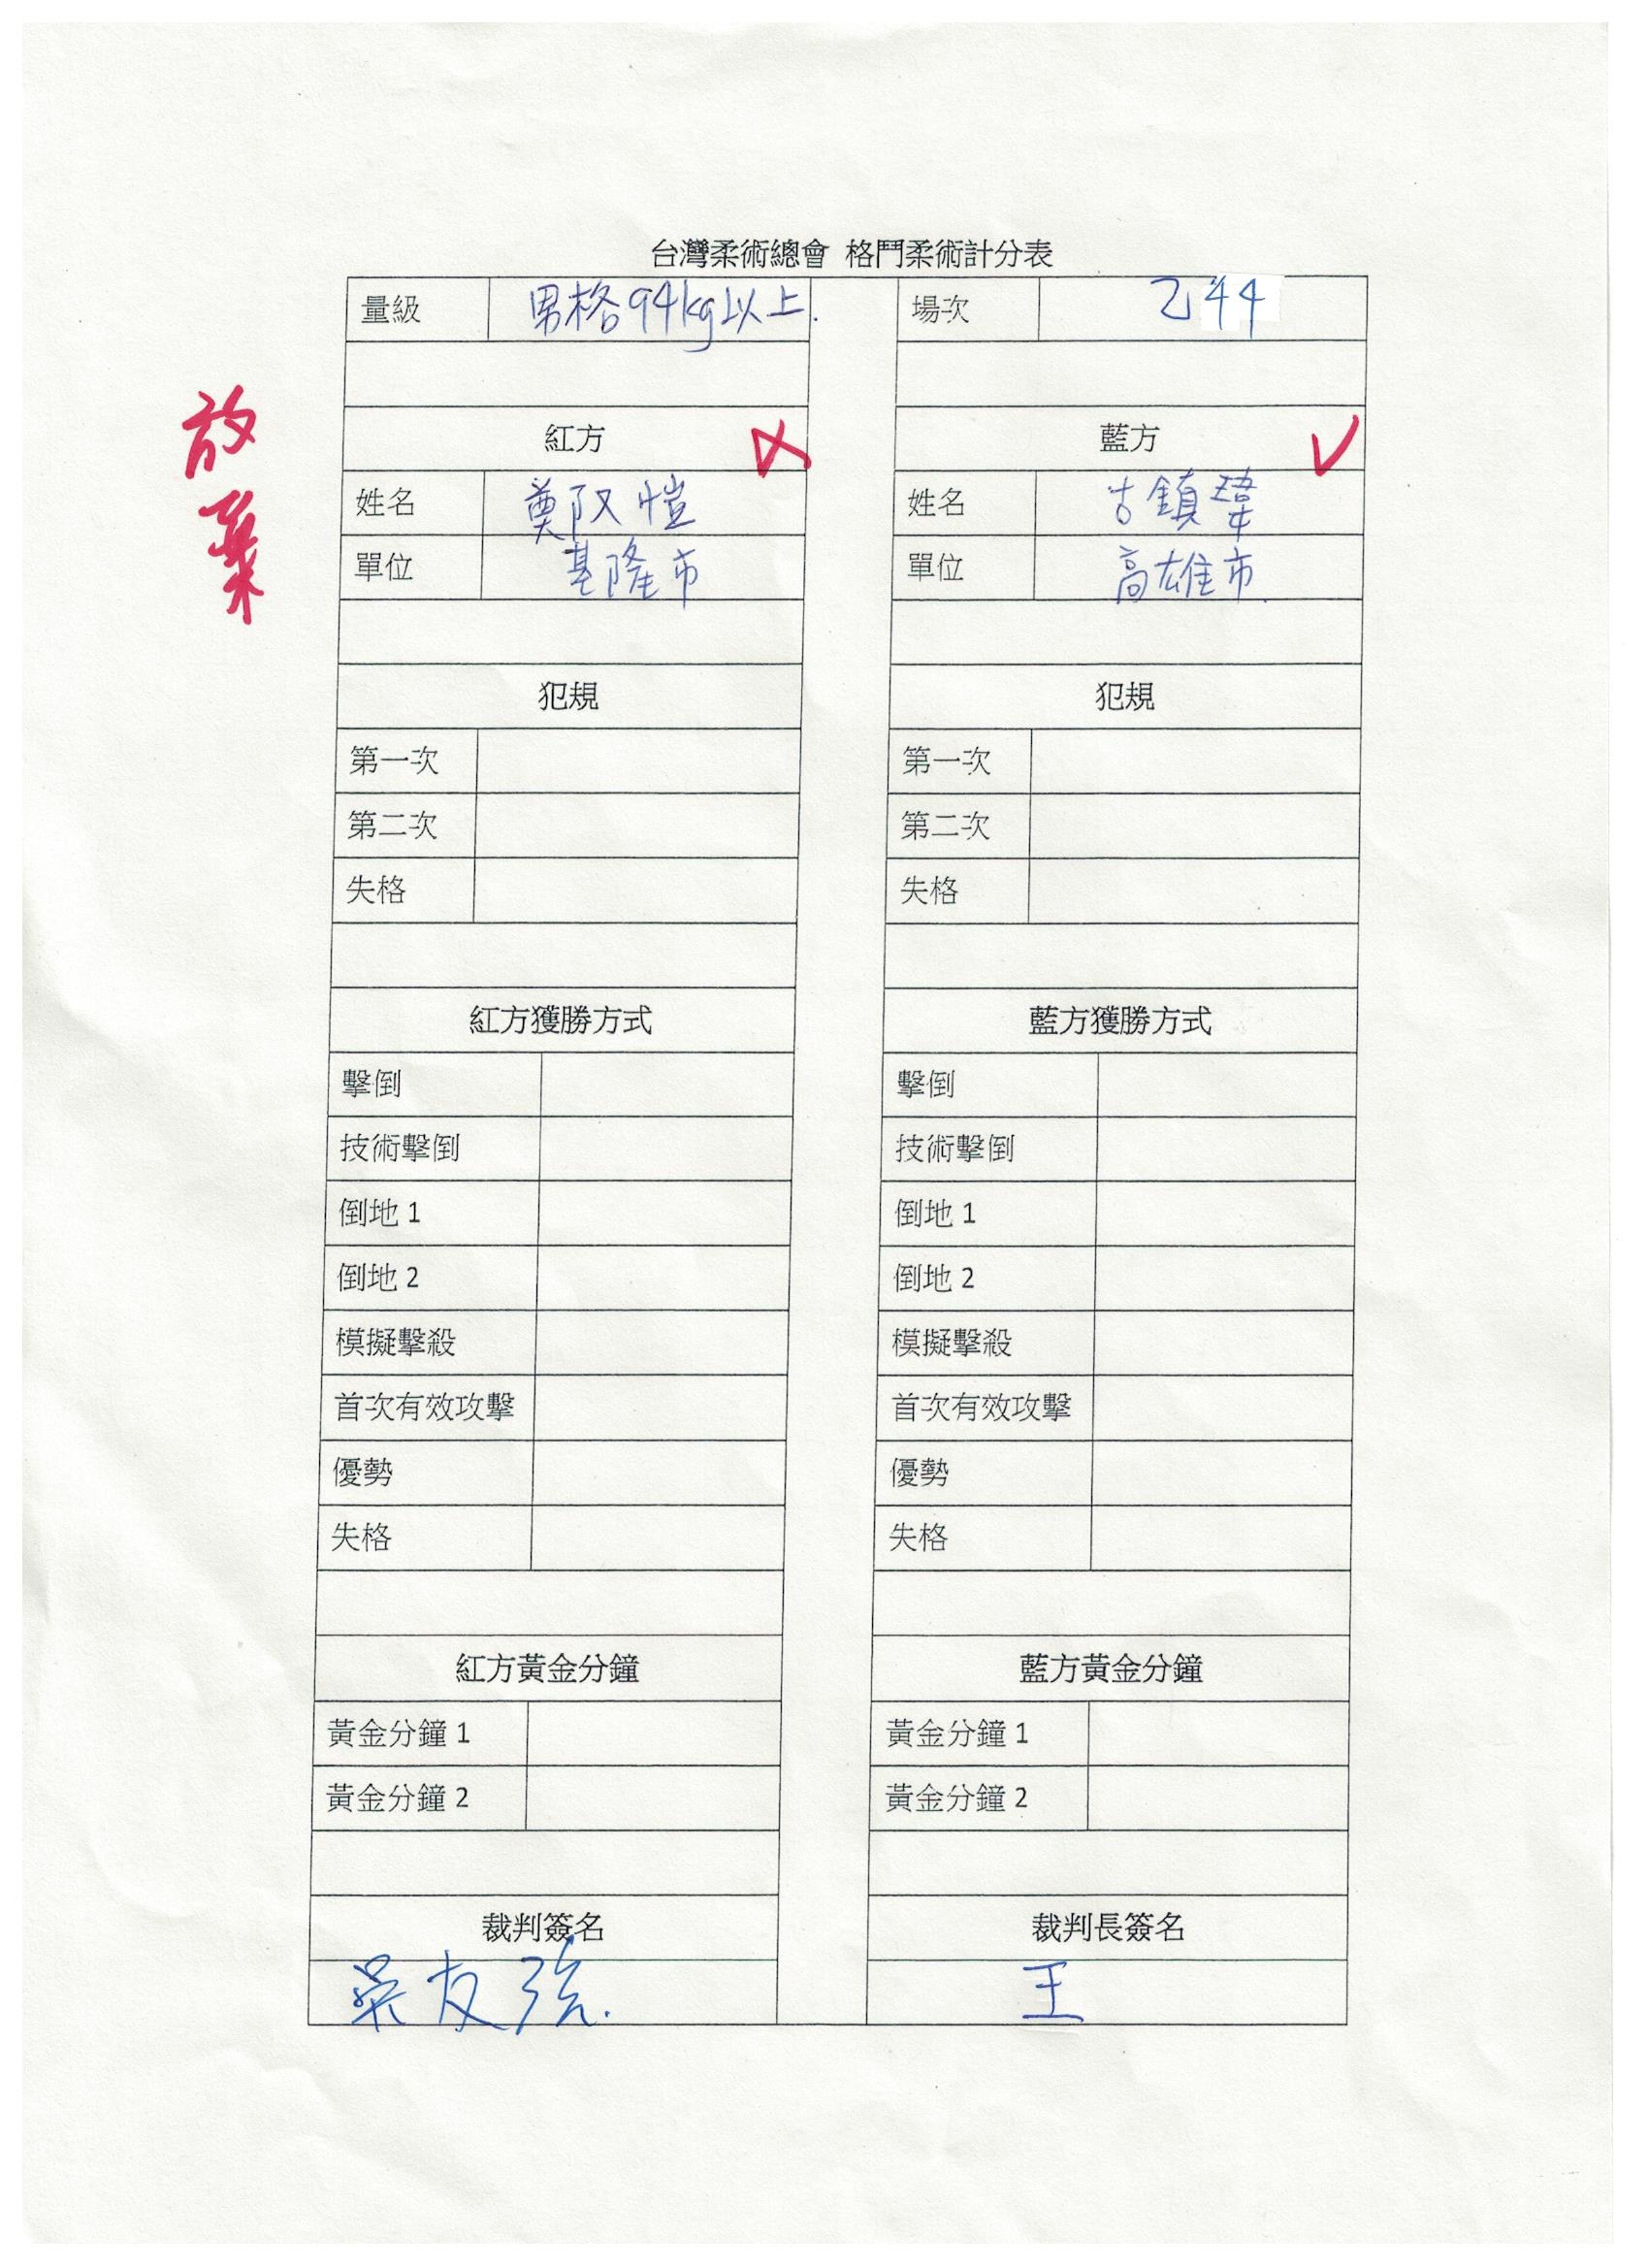 台灣柔術總會 格鬥柔術計分表
量級 男格94kg以上. 場次 乙44
放棄
紅方 藍方
姓名 鄭阪愷 姓名 古鎮瑋
單位 基隆市 單位 高雄市
犯規 犯規
第一次 第一次
第二次 第二次
失格 失格
紅方獲勝方式 藍方獲勝方式
擊倒 擊倒
技術擊倒 技術擊倒
倒地 1 倒地 1
倒地 2 倒地 2
模擬擊殺 模擬擊殺
首次有效攻擊 首次有效攻擊
優勢 優勢
失格 失格
紅方黃金分鐘 藍方黃金分鐘
黃金分鐘 1 黃金分鐘 1
黃金分鐘 2 黃金分鐘 2
裁判簽名 裁判長簽名
吳友 王